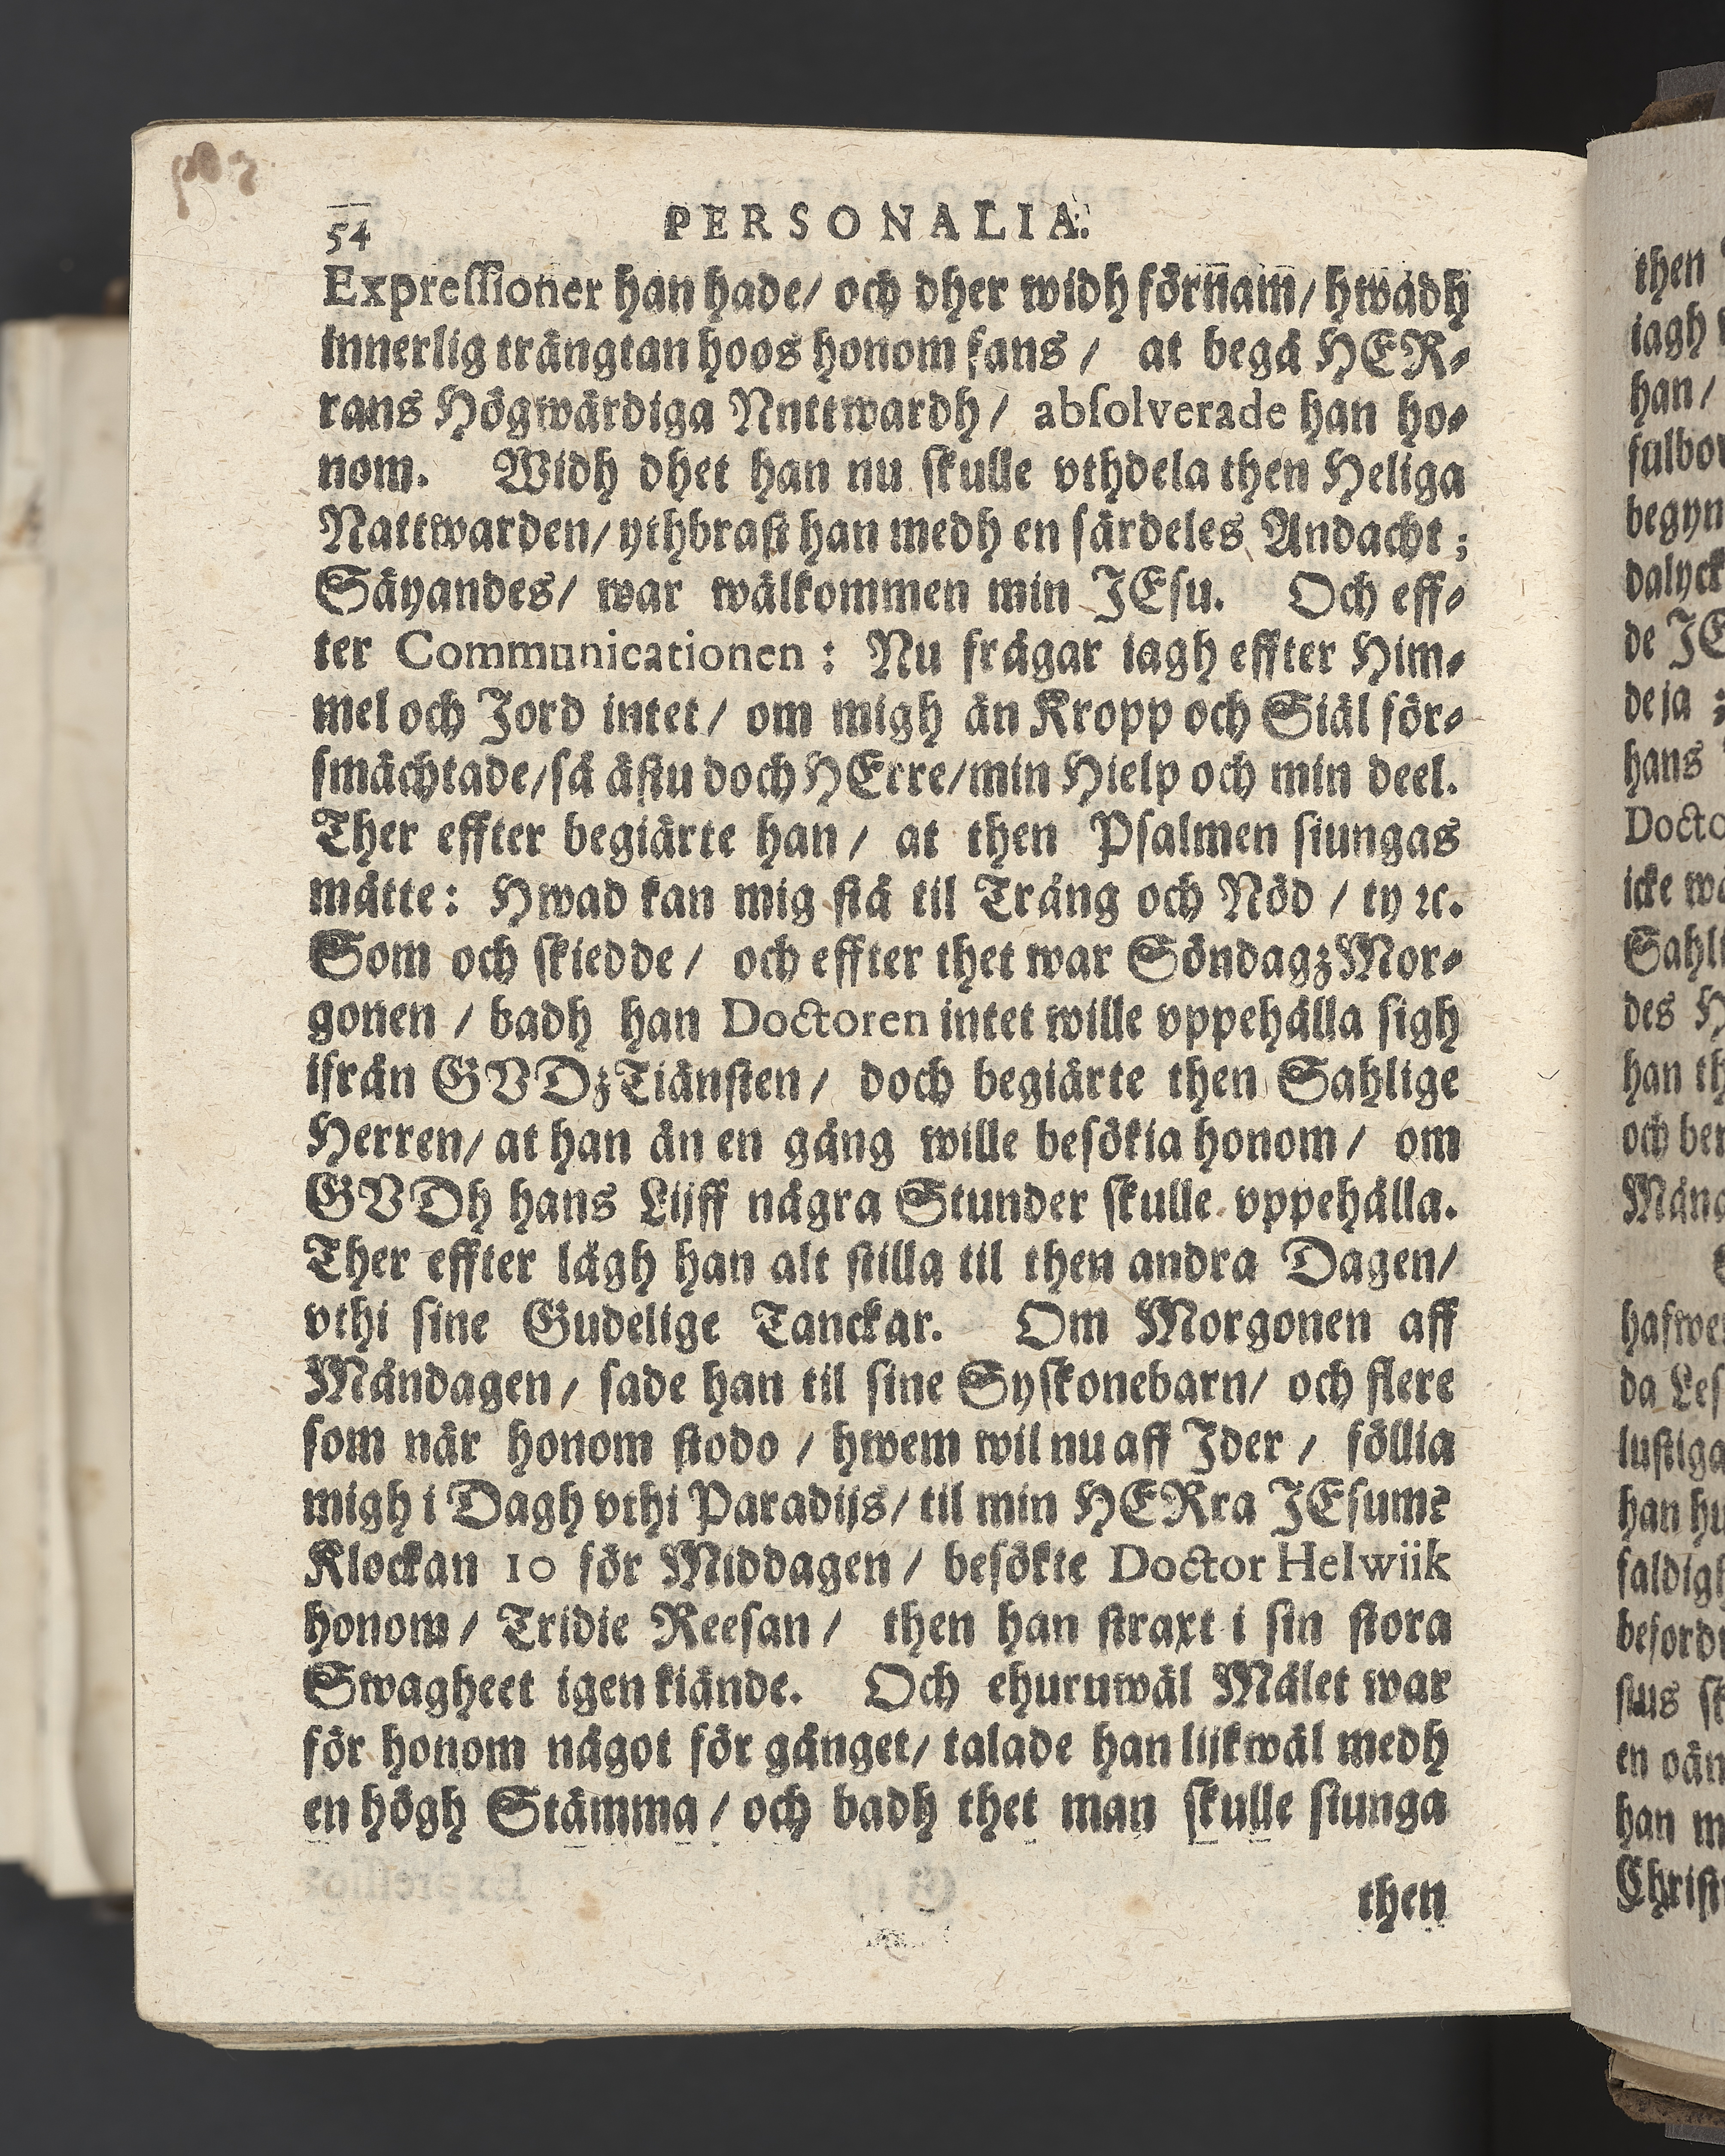 54 PERSONALIA.
Expressioner han hade/ och dher widh förnam/ hwadh
innerlig trångtan hoos honom fans / at begå HER-
rans Högwärdiga Nnttwardh/ absolverade han ho-
nom. Widh dhet han nu skulle vthdela then Heliga
Nattwarden/ ythbrast han medh en särdeles Andacht;
Säyandes/ war wälkommen min JEsu. Och eff-
ter Communicationen: Nu frågar iagh effter Him-
mel och Jord intet/ om migh än Kropp och Siäl för-
smächtade/så ästu doch HErre/min Hielp och min deel.
Ther effter begiärte han/ at then Psalmen siungas
måtte: Hwad kan mig stå til Trång och Nöd / ty ꝛc.
Som och skiedde/ och effter thet war SöndagzMor-
gonen / badh han Doctoren intet wille vppehålla sigh
ifrån GVDzTiänsten/ doch begiärte then Sahlige
Herren/ at han än en gång wille besökia honom/ om
GVDh hans Lijff några Stunder skulle vppehålla.
Ther effter lågh han alt stilla til then andra Dagen/
vthi sine Gudelige Tanckar. Om Morgonen aff
Måndagen/ sade han til sine Syskonebarn/ och flere
som när honom stodo / hwem wil nu aff Jder / föllia
migh i Dagh vthi Paradijs/ til min HERra JEsum?
Klockan 10 för Middagen / besökte Doctor Helwiik
honom/ Tridie Reesan / then han straxt i sin stora
Swagheet igenkiände. Och ehuruwäl Målet war
för honom något för gånget/ talade han lijkwäl medh
en högh Stämma/ och badh thet man skulle siunga
then
then
iagh
han/
fulbor
begyn
dalyck
de JE
de ja
hans
Docto
icke wa
Sahli
des H
han th
och ber
Mång
hafwer
da Les
lustiga
han hu
faldigh
befordr
sius sk
en oän
han m
Christi